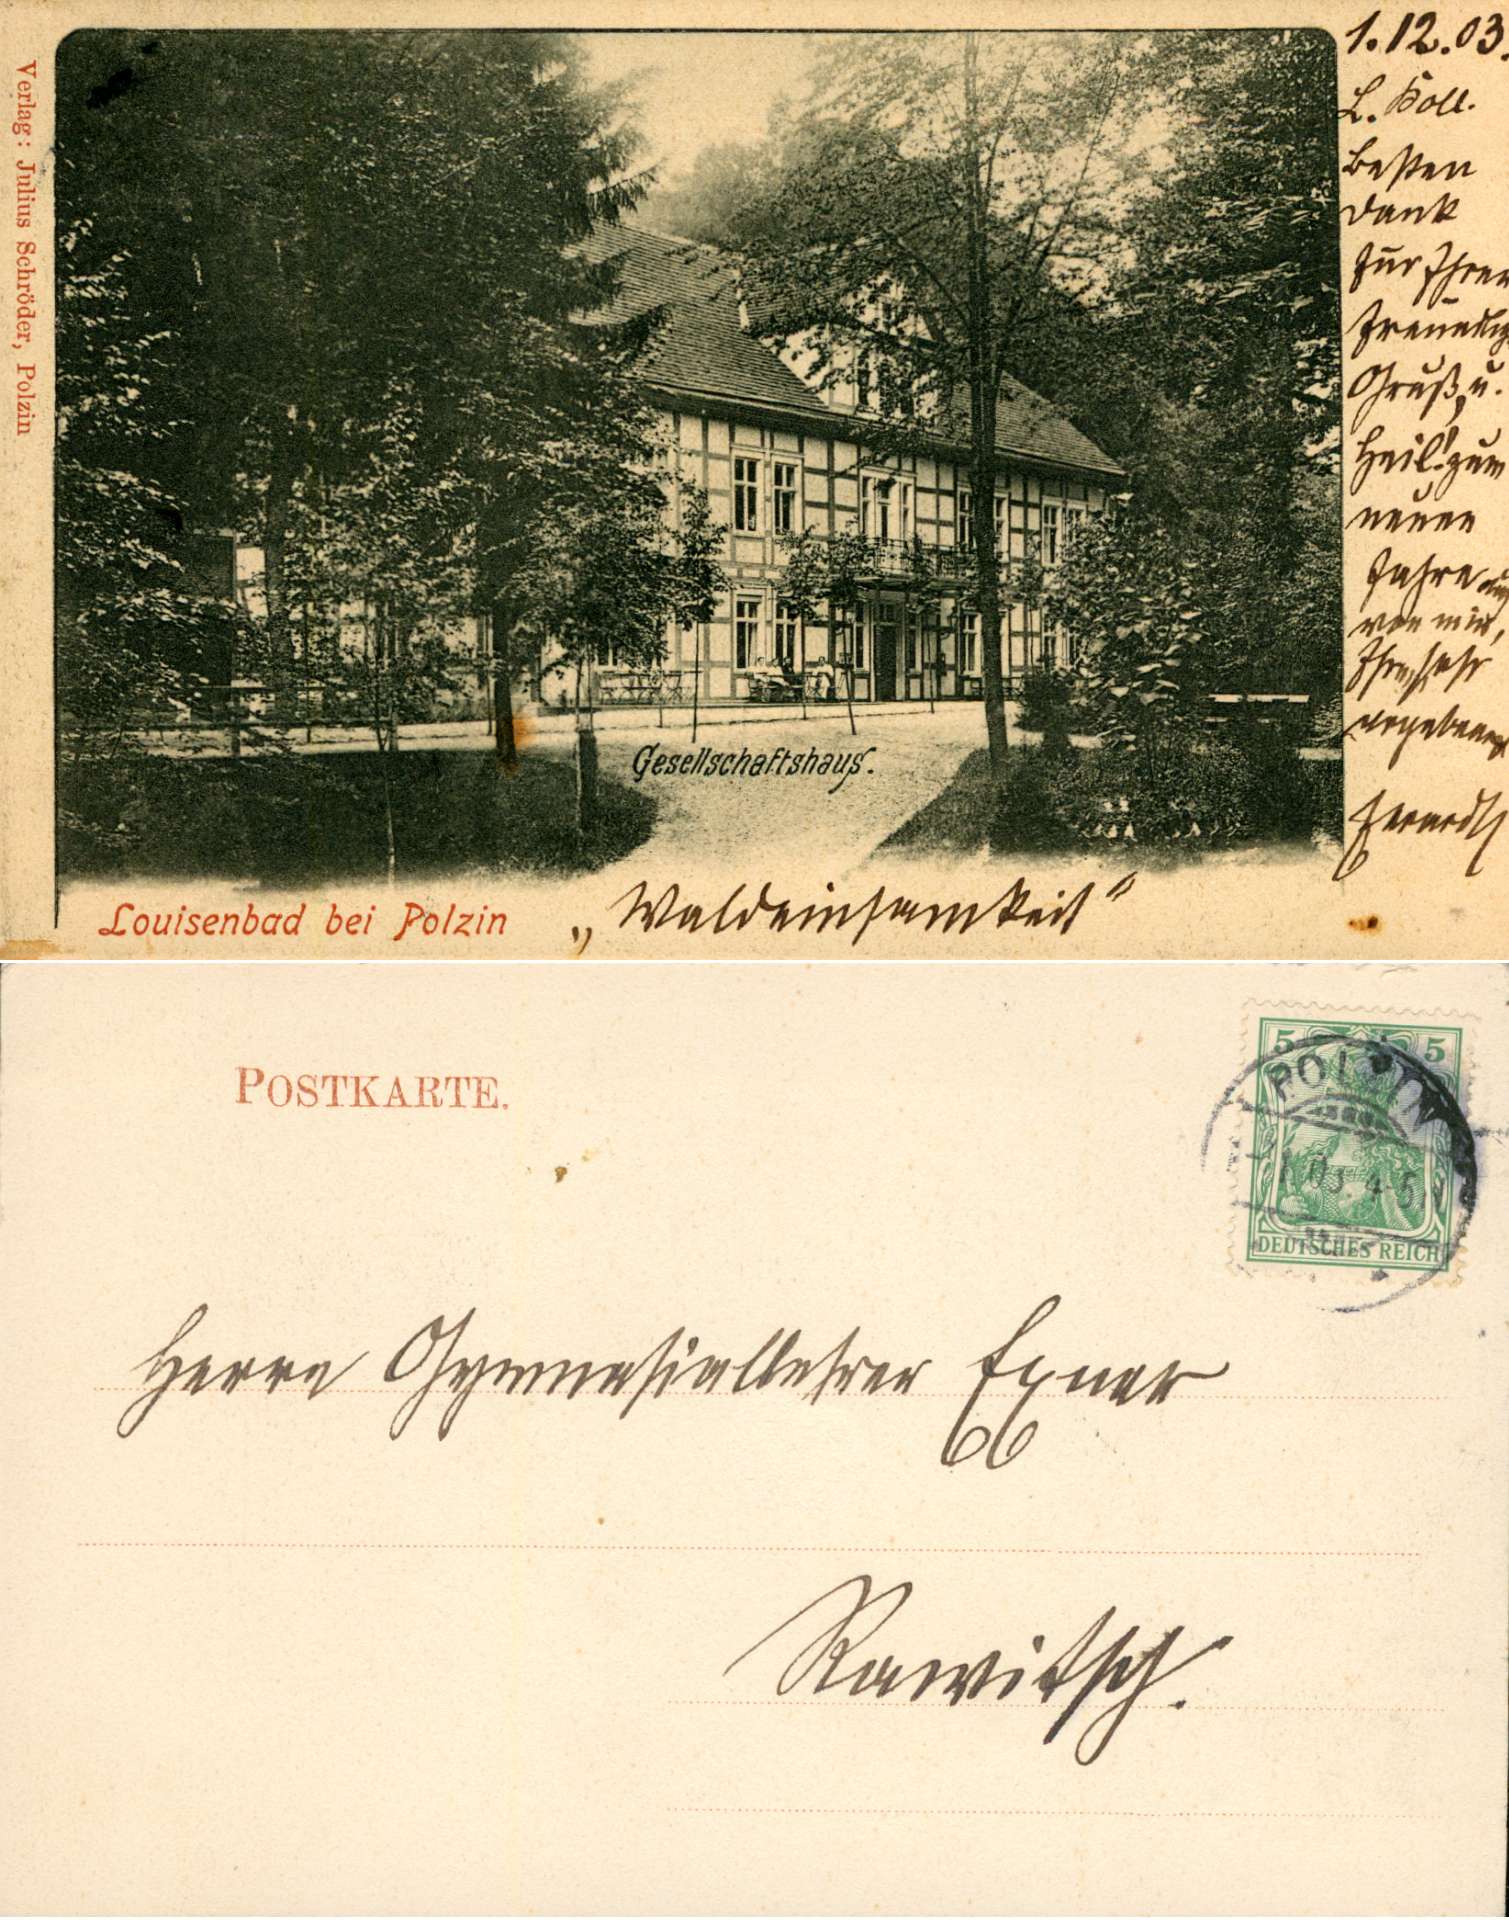 Verlag: Julius Schröder, Polzin
1.12.03.
L. Koll.
Besten
Dank
für Ihren
Gruß, u.
Heil! zum
neuen
Jahre
von mir,
Ihr sehr
ergebener
Gesellschaftshaus.
Louisenbad bei Polzin
„Waldeinsamkeit"
POSTKARTE.
5 5
POLZIN
03 4-5N
DEUTSCHES REICH
Herrn Gymnasiallehrer Exner
Rawitsch.